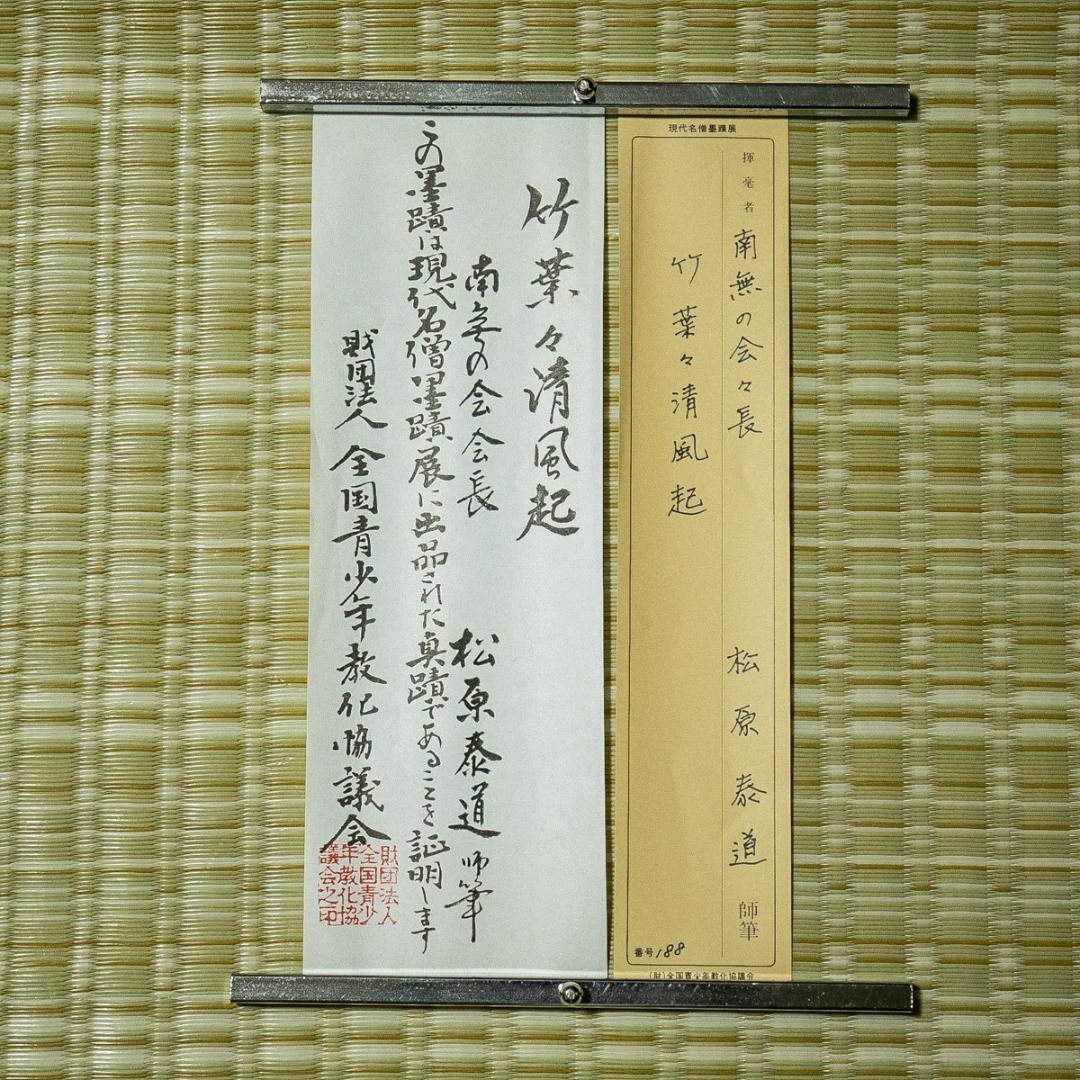 現代名僧墨蹟展
揮毫者 南無の会々長 松原泰道 師筆
竹葉々清風起
番号 188
(財)全国青少年教化協議会
竹葉々清風起
南無の会会長 松原泰道 師筆
この墨蹟は現代名僧墨蹟展に出品された真蹟であることを証明します
財団法人 全国青少年教化協議会
財団法人
全国青少
年教化協
議会之印